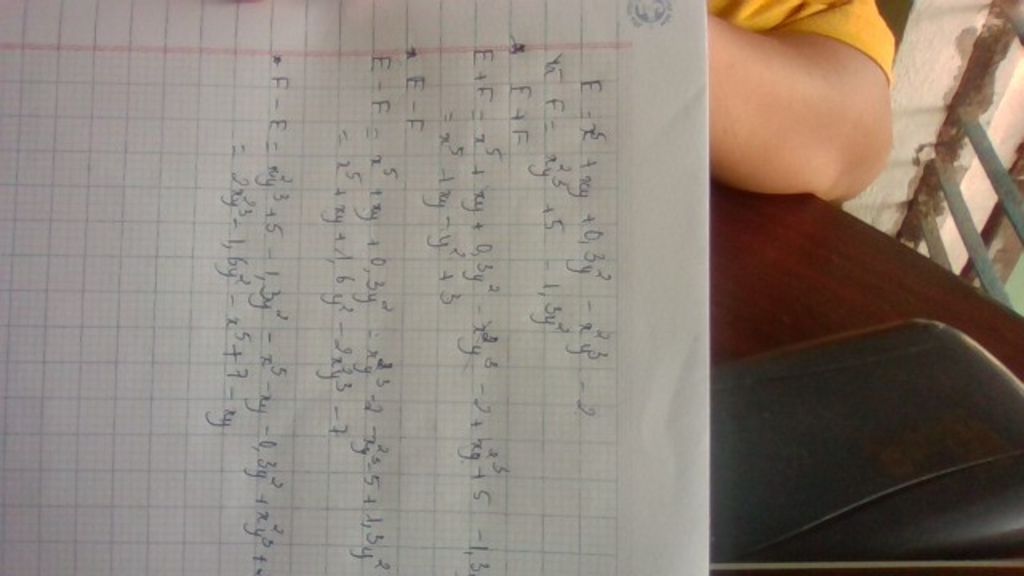 E = x⁵ + xy + 0,3y² - x²y³ - 2
F = x²y³ + 5 - 1,3y²
* E + F
E + F = x⁵ + xy + 0,3y² - x²y³ - 2 + x²y³ + 5 - 1,3
= x⁵ + xy - y² + 3
* E - F
E - F = x⁵ + xy + 0,3y² - x²y³ - 2 - x²y³ - 5 + 1,3y²
= x⁵ + xy + 1,6y² - 2x²y³ - 7
* F - E = x²y³ + 5 - 1,3y² - x⁵ - xy - 0,3y² + x²y³ +
= 2x²y³ - 1,6y² - x⁵ + 7 - xy